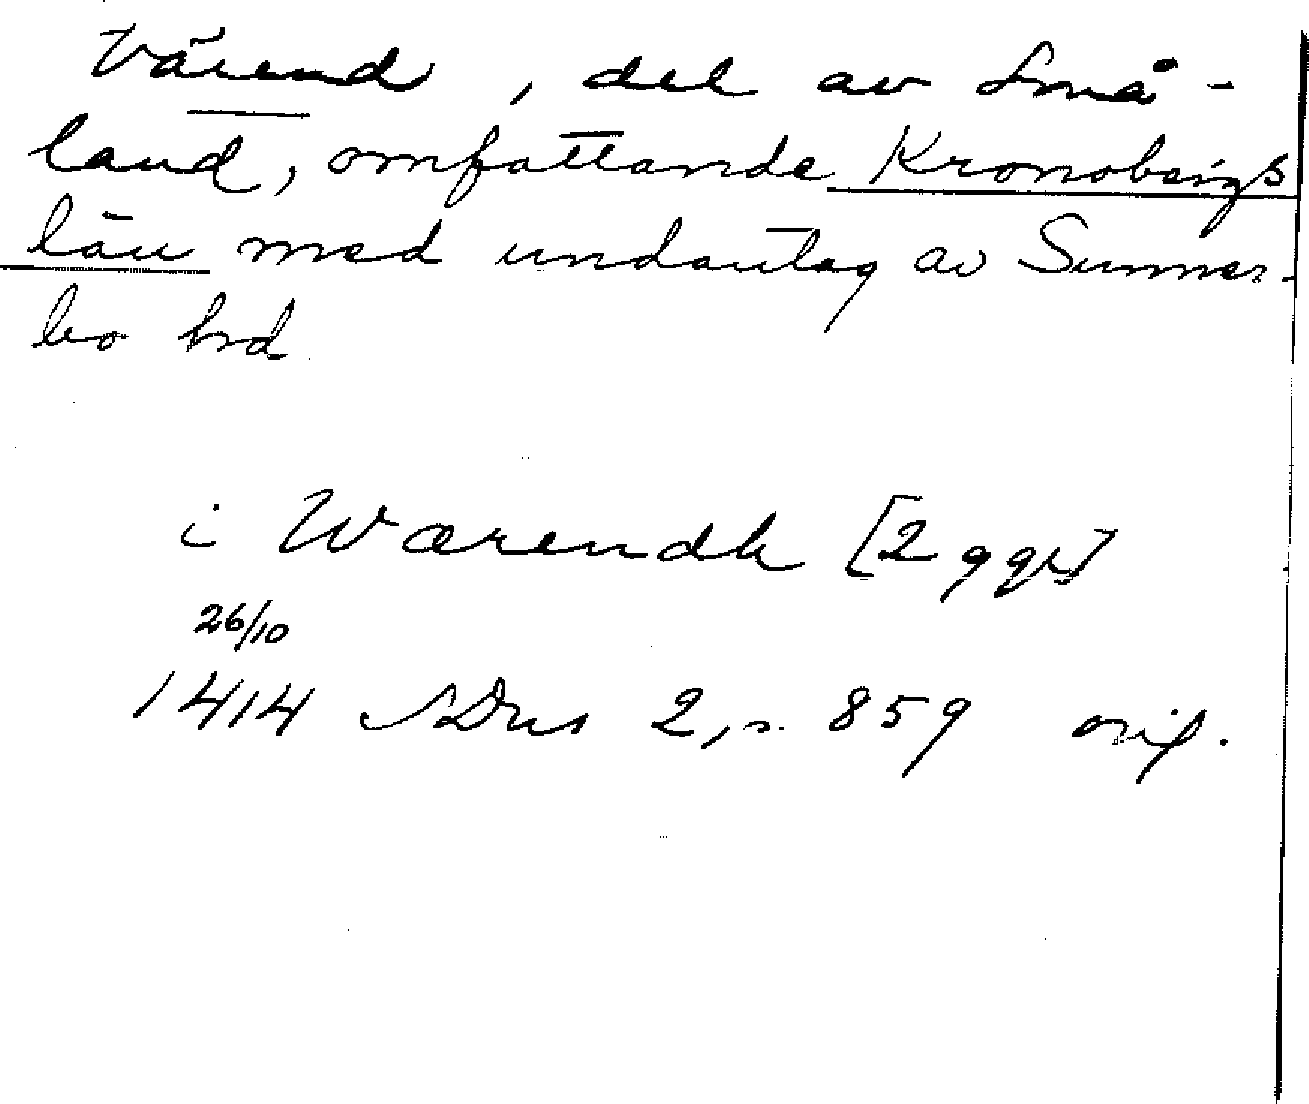 Värend, del av Små-
land, omfattande Kronobergs
län med undantag av Sunner-
bo hrd
i Wærendh [2 ggr]
26/10
1414 SDns 2, s. 859 orig.